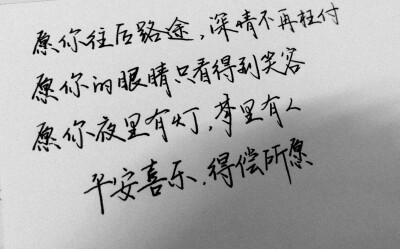 愿你往后路途,深情不再枉付
愿你的眼睛只看得到笑容
愿你夜里有灯,梦里有人
平安喜乐.得偿所愿